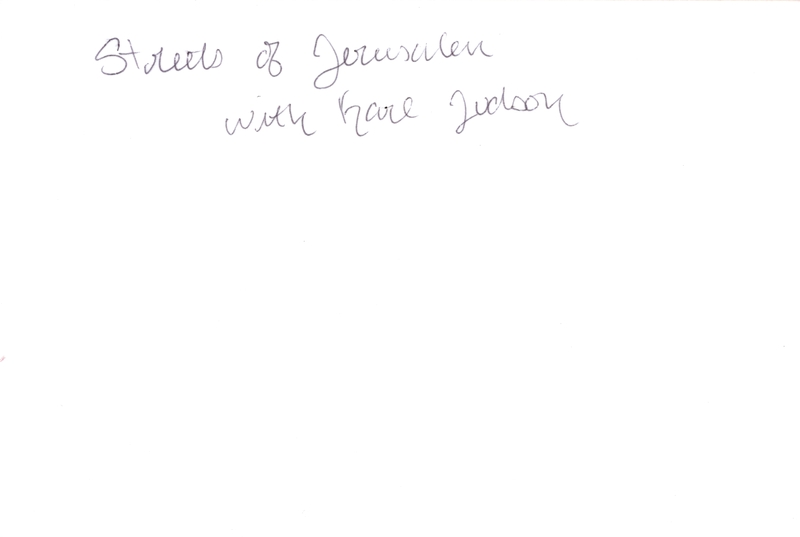 Streets of Jerusalem
with Karl Judson